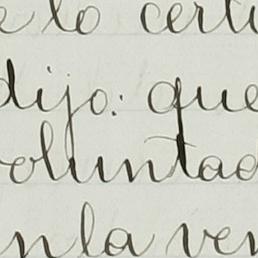 e lo certi
dijo: que
oluntad
n la ver